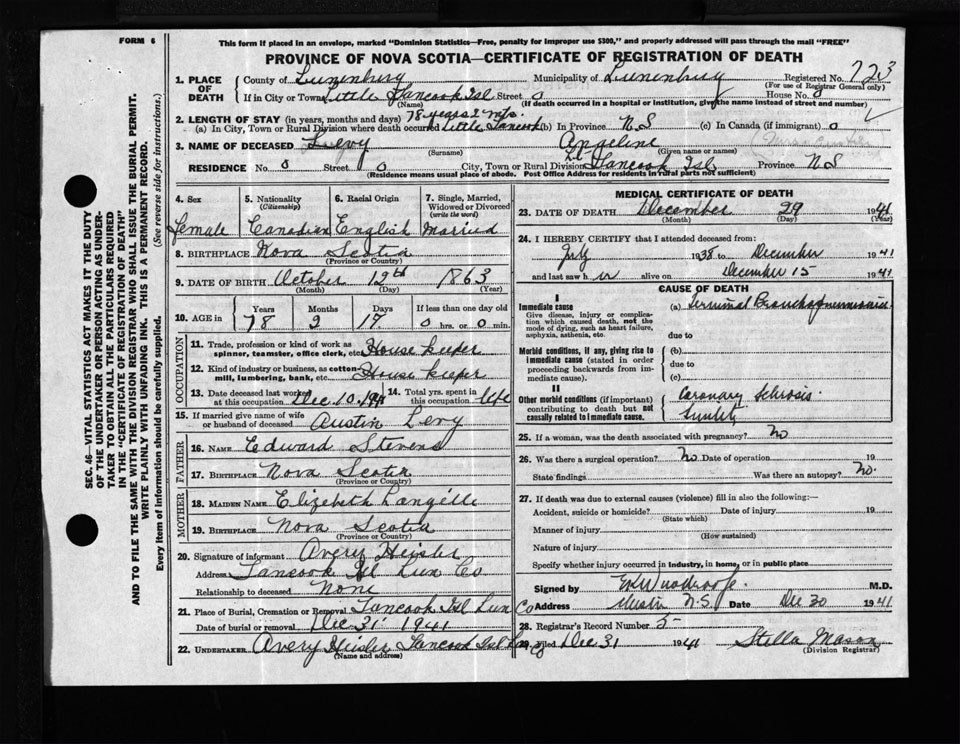 FORM 6
This form if placed in an envelope, marked "Dominion Statistics—Free, penalty for improper use $300," and properly addressed will pass through the mail "FREE"
PROVINCE OF NOVA SCOTIA—CERTIFICATE OF REGISTRATION OF DEATH
SEC. 46—VITAL STATISTICS ACT MAKES IT THE DUTY
OF THE UNDERTAKER OR PERSON ACTING AS UNDER-
TAKER TO OBTAIN ALL THE PARTICULARS REQUIRED
IN THE "CERTIFICATE OF REGISTRATION OF DEATH"
AND TO FILE THE SAME WITH THE DIVISION REGISTRAR WHO SHALL ISSUE THE BURIAL PERMIT.
WRITE PLAINLY WITH UNFADING INK. THIS IS A PERMANENT RECORD.
Every item of information should be carefully supplied. (See reverse side for instructions.)
1. PLACE OF DEATH
County of Lunenburg Municipality of Lunenburg Registered No. 723
(For use of Registrar General only)
If in City or Town Little Tancook Isl Street 0 House No. 0
(Name) (If death occurred in a hospital or institution, give the name instead of street and number)
2. LENGTH OF STAY (in years, months and days) 78 years 2 m's.
(a) In City, Town or Rural Division where death occurred Little Tancook (b) In Province N S (c) In Canada (if immigrant) 0
3. NAME OF DECEASED Levy Angeline
(Surname) (Given name or names)
RESIDENCE No. 0 Street 0 City, Town or Rural Division Lt Tancook Isl Province N S
(Residence means usual place of abode. Post Office Address for residents in rural parts not sufficient)
4. Sex
5. Nationality (Citizenship)
6. Racial Origin
7. Single, Married, Widowed or Divorced (write the word)
female Canadian English Married
8. BIRTHPLACE Nova Scotia
(Province or Country)
9. DATE OF BIRTH October 12th 1863
(Month) (Day) (Year)
10. AGE in Years Months Days If less than one day old
78 2 17 0 hrs. or 0 min.
OCCUPATION
11. Trade, profession or kind of work as spinner, teamster, office clerk, etc. House keeper
12. Kind of industry or business, as cotton mill, lumbering, bank, etc. House keeper
13. Date deceased last worked at this occupation Dec 10. 1941 14. Total yrs. spent in this occupation life
15. If married give name of wife or husband of deceased Austin Levy
FATHER
16. NAME Edward Stevens
17. BIRTHPLACE Nova Scotia
(Province or Country)
MOTHER
18. MAIDEN NAME Elizebeth Langille
19. BIRTHPLACE Nova Scotia
(Province or Country)
20. Signature of informant Avery Heisler
Address Tancook Isl Lun Co
Relationship to deceased None
21. Place of Burial, Cremation or Removal Tancook Isl Lun Co
Date of burial or removal Dec 31 1941
22. UNDERTAKER Avery Heisler Tancook Isl Lun Co
(Name and address)
MEDICAL CERTIFICATE OF DEATH
23. DATE OF DEATH December 29 1941
(Month) (Day) (Year)
24. I HEREBY CERTIFY that I attended deceased from:
July 1938 to December 1941
and last saw her alive on December 15 1941
CAUSE OF DEATH
I
Immediate cause
Give disease, injury or complication which caused death, not the mode of dying, such as heart failure, asphyxia, asthenia, etc.
(a) Terminal Bronchopneumonia
due to
Morbid conditions, if any, giving rise to immediate cause (stated in order proceeding backwards from immediate cause).
(b)
due to
(c)
II
Other morbid conditions (if important) contributing to death but not causally related to immediate cause.
Coronary Sclerosis
Senility
25. If a woman, was the death associated with pregnancy? no
26. Was there a surgical operation? No Date of operation 19
State findings Was there an autopsy? No.
27. If death was due to external causes (violence) fill in also the following:—
Accident, suicide or homicide? Date of injury 19
(State which)
Manner of injury
(How sustained)
Nature of injury
Specify whether injury occurred in industry, in home, or in public place
Signed by M.D.
Address N.S. Date Dec 30 1941
28. Registrar's Record Number 5
29. Filed Dec 31 1941 Stella Mason
(Division Registrar)